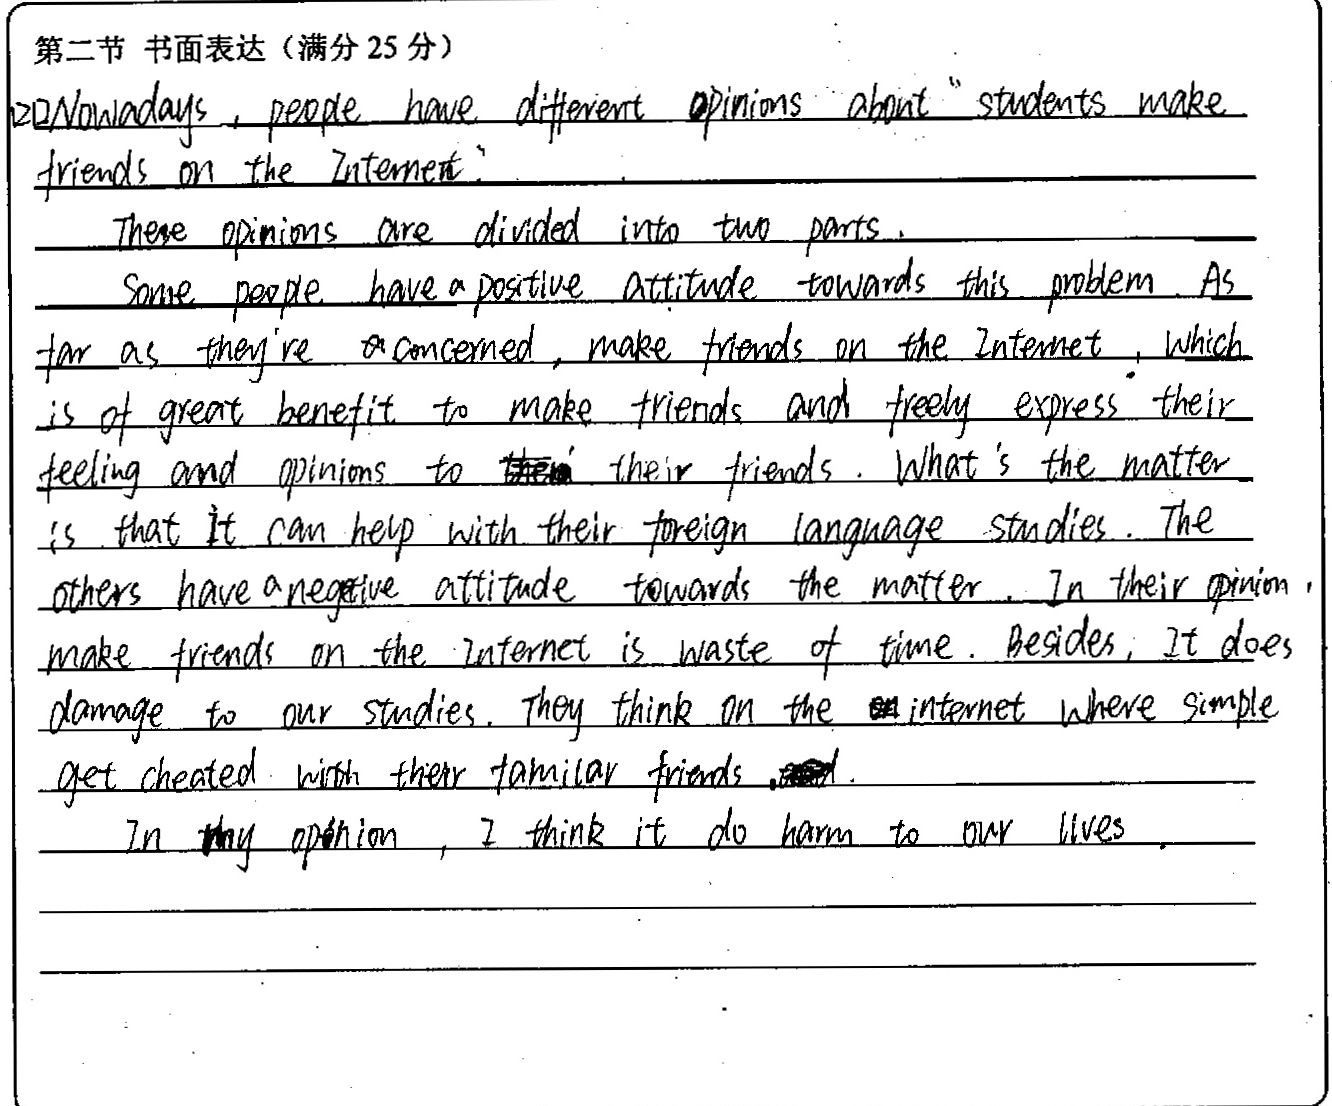 第二节 书面表达（满分 25 分）
Nowadays, people have different opinions about "students make
friends on the Internet".
These opinions are divided into two parts.
Some people have a positive attitude towards this problem. As
far as they're concerned, make friends on the Internet, which
is of great benefit to make friends and freely express their
feeling and opinions to their friends. What's the matter
is that It can help with their foreign language studies. The
others have a negetive attitude towards the matter. In their opinion,
make friends on the Internet is waste of time. Besides, It does
damage to our studies. They think on the internet where simple
get cheated with their familar friends.
In my opinion, I think it do harm to our lives.